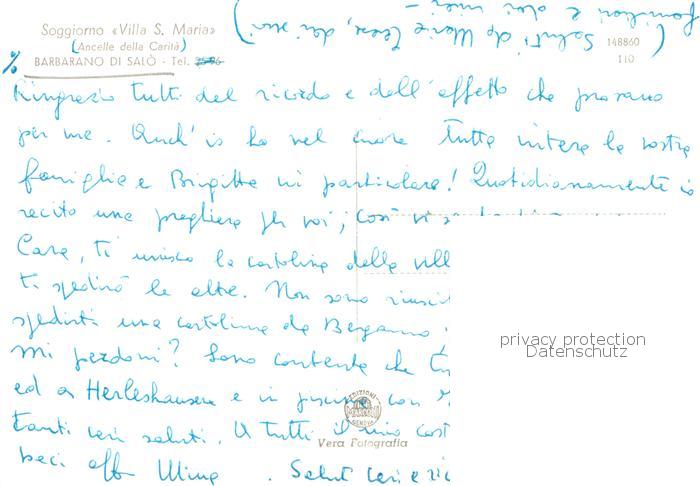 Soggiorno «Villa S. Maria»
(Ancelle della Carità)
% BARBARANO DI SALÒ - Tel.
148860
110
(Saluti da Maria dai suoi
familiari e dai miei -
Ringrazio tutti del ricordo e dell'affetto che provano
per me. Anch'io ho nel cuore tutta intera la vostra
famiglia e Brigitta in particolare! Quotidianamente io
recito una preghiera per voi; così vi
Cara, ti unisco la cartolina della vill
ti spedirò le altre. Non sono riusci
spedirti una cartolina da Bergamo
Mi perdoni? Sono contenta che
ed a Herleshausen e in piscina con
tanti cari saluti. A tutti il mio cost
baci aff . Saluti cari e ric
EDIZIONI
GENOVA
Vera Fotografia
privacy protection
Datenschutz